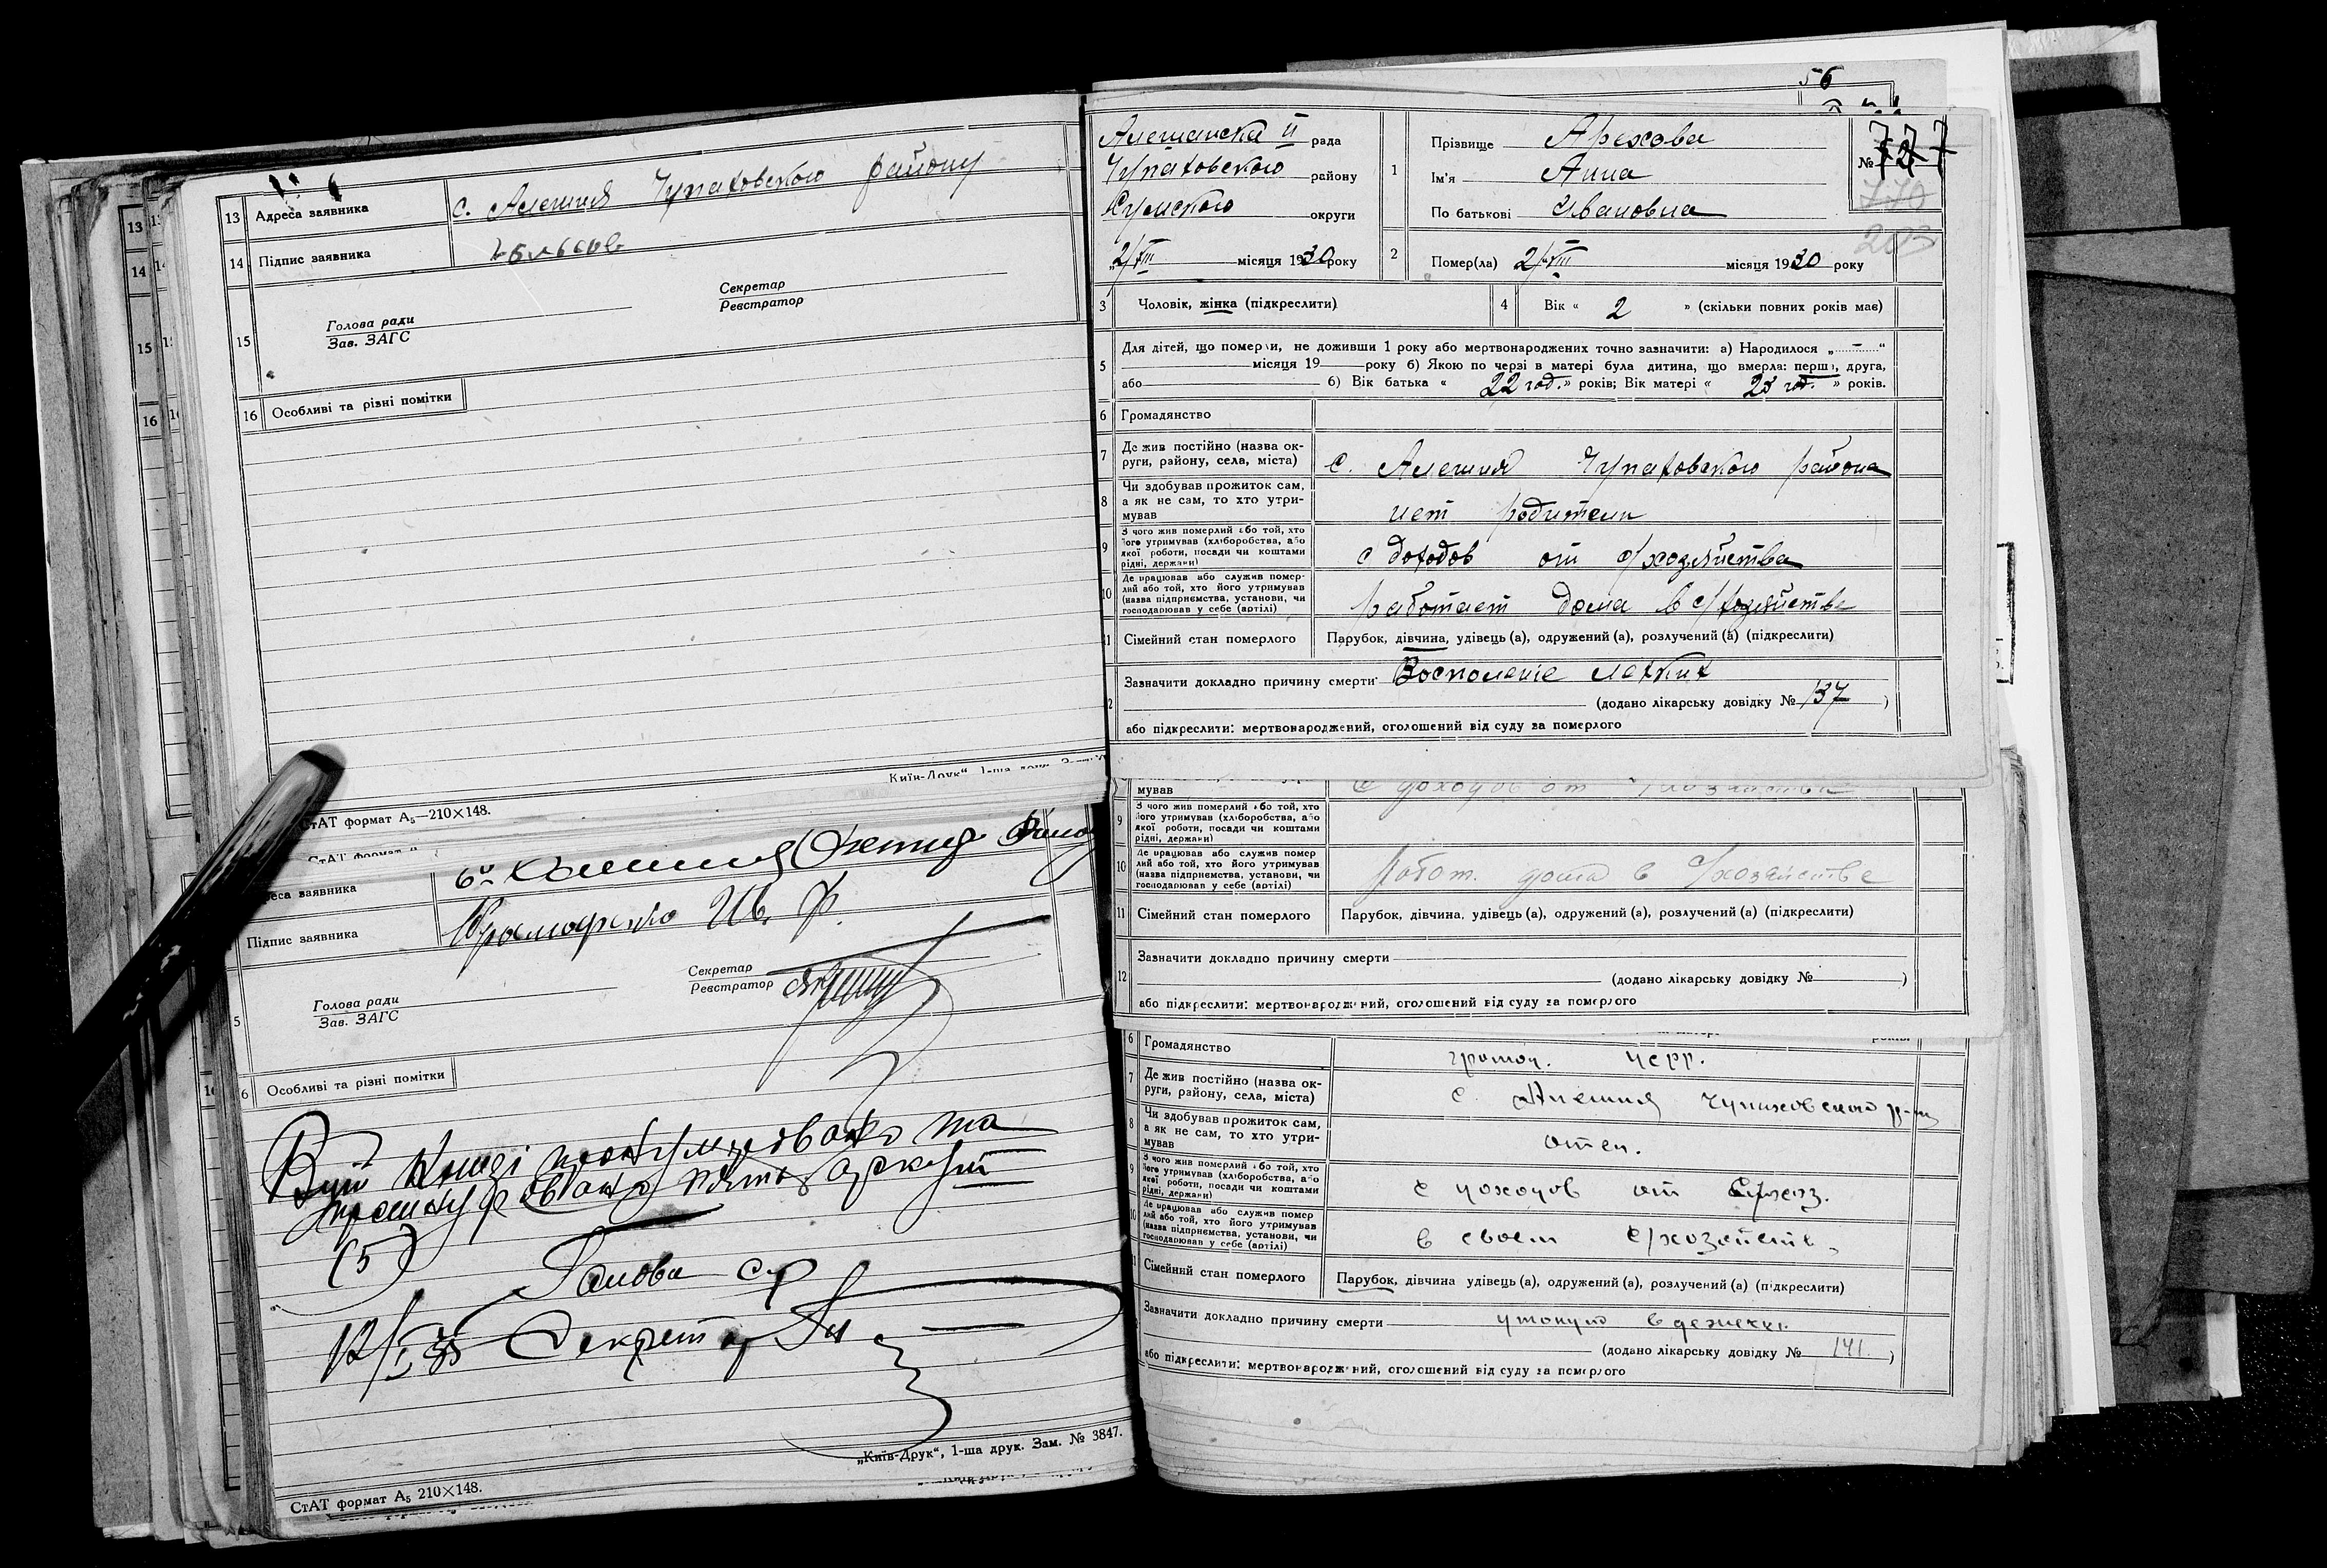 13 Адреса заявника с. Алешня Чупаховского району
14 Підпис заявника
15 Голова ради
Зав. ЗАГС
Секретар
Реєстратор
16 Особливі та різні помітки
Київ-Друк“, 1-ша друк.
СтАТ формат А₅—210×148.
Адреса заявника
Підпис заявника Ив. Ф.
Голова ради
Зав. ЗАГС
Секретар
Реєстратор
6 Особливі та різні помітки
В цій книзі пронумеровано та
прошнуровано п'ять аркуш
(5)
Голова с/р
Секретар
„Київ-Друк“, 1-ша друк. Зам. № 3847.
СтАТ формат А₅ 210×148.
56
Алешанска II рада
Чупаховского району
Сумского округи
„2/VIII місяця 1930 року
1 Прізвище Арехова
Ім'я Анна
По батькові Ивановна
№ 727
770
203
2 Помер(ла) 2/VIII місяця 1930 року
3 Чоловік, жінка (підкреслити)
4 Вік « 2 » (скільки повних років має)
5 Для дітей, що померли, не доживши 1 року або мертвонароджених точно зазначити: а) Народилося „ — “
місяця 19 року б) Якою по черзі в матері була дитина, що вмерла: перша, друга,
або б) Вік батька « 22 год. » років; Вік матері « год. » років.
6 Громадянство
7 Де жив постійно (назва округи, району, села, міста) с. Алешня Чупаховского района
8 Чи здобував прожиток сам, а як не сам, то хто утримував нет родители
9 З чого жив померлий або той, хто його утримував (хліборобства, або якої роботи, посади чи коштами рідні, держави) с доходов от с/хозяйства
10 Де працював або служив померлий або той, хто його утримував (назва підприємства, установи, чи господарював у себе (артілі) работает дома в с/хозяйстве
11 Сімейний стан померлого Парубок, дівчина, удівець (а), одружений (а), розлучений (а) (підкреслити)
Зазначити докладно причину смерти Восполение легких
(додано лікарську довідку № 137 )
або підкреслити: мертвонароджений, оголошений від суду за померлого
мував с доходов от с/хозяйства
9 З чого жив померлий або той, хто його утримував (хліборобства, або якої роботи, посади чи коштами рідні, держави)
10 Де працював або служив померлий або той, хто його утримував (назва підприємства, установи, чи господарював у себе (артілі) работ. дома в с/хозяйстве
11 Сімейний стан померлого Парубок, дівчина, удівець (а), одружений (а), розлучений (а) (підкреслити)
12 Зазначити докладно причину смерти
(додано лікарську довідку № )
або підкреслити: мертвонароджений, оголошений від суду за померлого
6 Громадянство громад. УСРР.
7 Де жив постійно (назва округи, району, села, міста) с. Алешня Чупаховского р-на
8 Чи здобував прожиток сам, а як не сам, то хто утримував отец.
9 З чого жив померлий або той, хто його утримував (хліборобства, або якої роботи, посади чи коштами рідні, держави) с доходов от с/хоз.
10 Де працював або служив померлий або той, хто його утримував (назва підприємства, установи, чи господарював у себе (артілі) в своем с/хозяйств.
Сімейний стан померлого Парубок, дівчина удівець (а), одружений (а), розлучений (а) (підкреслити)
Зазначити докладно причину смерти утонул
(додано лікарську довідку № 141. )
або підкреслити: мертвонароджений, оголошений від суду за померлого